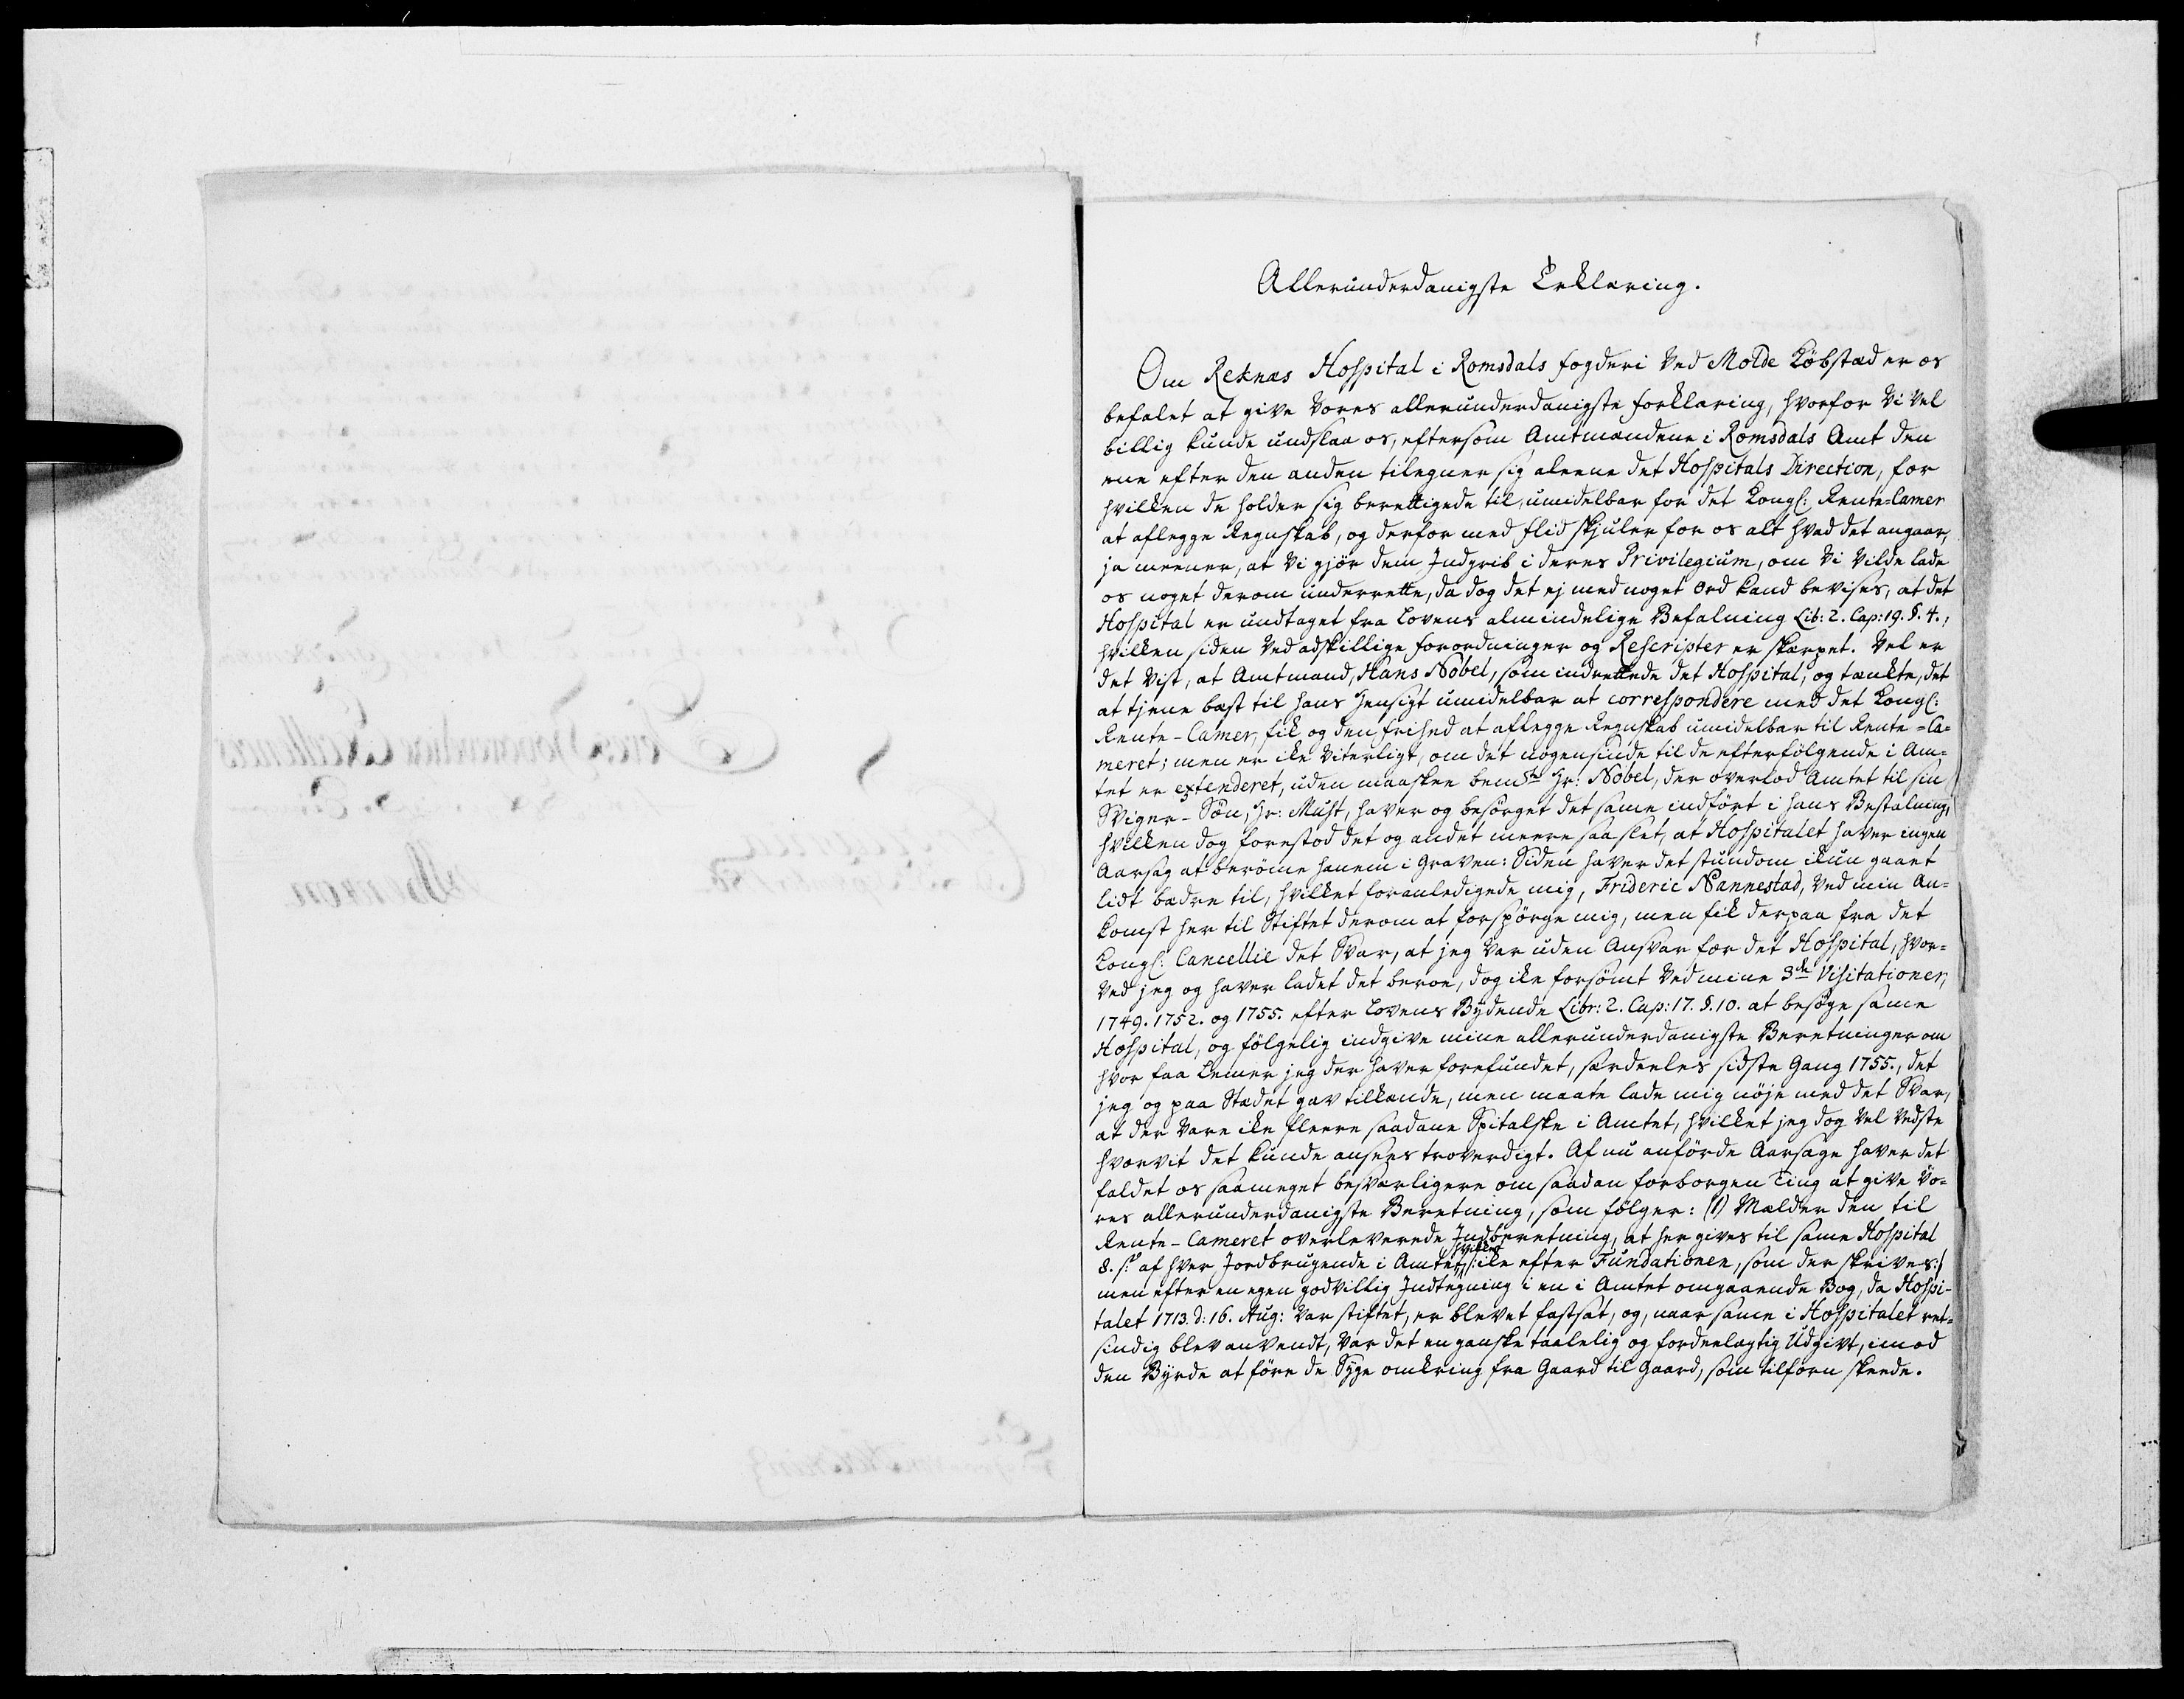 Allerunderdanigste Erklæring.
Om Reknæs Hospital i Romsdals fogderi ved Molde Köbstæd er os
befalet at give vores allerunderdanigste forklaring, hvorfor vi vel
billig kunde undslaa os, eftersom Amtmændene i Romsdals Amt den
ene efter den anden tilegner sig aleene det Hospitals Direction, for
hvilken de holder sig berettigede til, umidelbar for det Kongl: Rente-Camer
at aflegge Regnskab, og derfor med flid skjuler for os alt hvad det angaar,
ja meener, at vi gjör dem Indgrib i deres Privilegium, om vi vilde lade
os noget derom underrette, da dog det ej med noget Ord kand bevises, at det
Hospital er undtaget fra Lovens almindelige Befalning Lib: 2. Cap: 19. §. 4.,
hvilken siden ved adskillige forordninger og Rescripter er skærpet. Vel er
det vist, at Amtmand, Hans Nobel, som indrettede det Hospital, og tænkte, det
at tjene bæst til hans Hensigt umidelbar at correspondere med det Kongl:
Rente-Camer, fik og den frihed at aflegge Regnskab umidelbar til Rente-Ca-
meret; men er ike viterligt, om det nogensinde til de efterfölgende i Am-
tet er extenderet, uden maaskee bemte Hr: Nobel, der overlod Amtet til sin
Sviger-Sön, Hr: Must, haver og besörget det same indfört i hans Bestalning,
hvilken dog forestod det og andet meere saa slet, at Hospitalet haver ingen
Aarsag at berömme hanem i Graven: Siden haver det stundom ikun gaaet
lidt bædre til, hvilket foranledigede mig, Frideric Nannestad, ved min An-
komst her til Stiftet derom at forspörge mig, men fik derpaa fra det
Kongl: Cancellie det Svar, at jeg var uden Ansvar for det Hospital, hvor-
ved jeg og haver ladet det beroe, dog ike forsömt ved mine 3de Visitationer,
1749. 1752. og 1755. efter Lovens Bydende Libr: 2. Cap: 17. §. 10. at besöge same
Hospital, og fölgelig indgive mine allerunderdanigste Beretninger om
hvor faa Lemer jeg der haver forefundet, særdeeles sidste Gang 1755., det
jeg og paa Stædet gav tilkænde, men maate lade mig nöje med det Svar,
at der vare ike fleere saadane Spitalske i Amtet, hvilket jeg dog vel vedste
hvorvit det kunde ansees troværdigt. Af nu anförde Aarsage haver det
faldet os saameget besværligere om saadan forborgen Ting at give vo-
res allerunderdanigste Beretning, som fölger: (1) Mælder den til
Rente-Cameret overleverede Indberetning, at her gives til same Hospital
8. s: af hver Jordbrugende i Amtet, hvilket /: ike efter Fundationen, som der skrives :/
men efter en egen godvillig Indtegning i en i Amtet omgaaende Bog, da Hospi-
talet 1713. d: 16. Aug: var stiftet, er blevet fastsat, og, naar same i Hospitalet ret-
sindig blev anvendt, var det en ganske taalelig og fordeelagtig Udgivt, imod
den Byrde at före de Syge omkring fra Gaard til Gaard, som tilforn skeede.